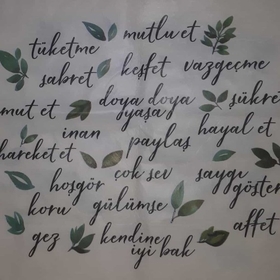 mutlu et
tüketme
keşfet vazgeçme
sabret
doya doya yaşa
şükre
mut et
inan
paylaş
hayal et
hareket et
çok sev
saygı göster
hoşgör
koru
gülümse
affet
gez
kendine iyi bak